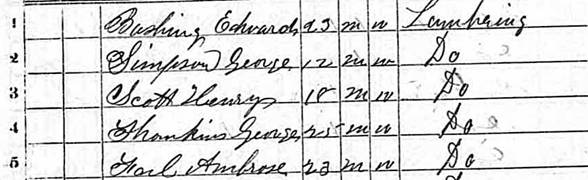 1 Bushing Edward 23 m w Lumbering
2 Simpson George 12 m w Do
3 Scott Henry 18 m w Do
4 George 25 m w Do
5 Ambrose 23 m w Do